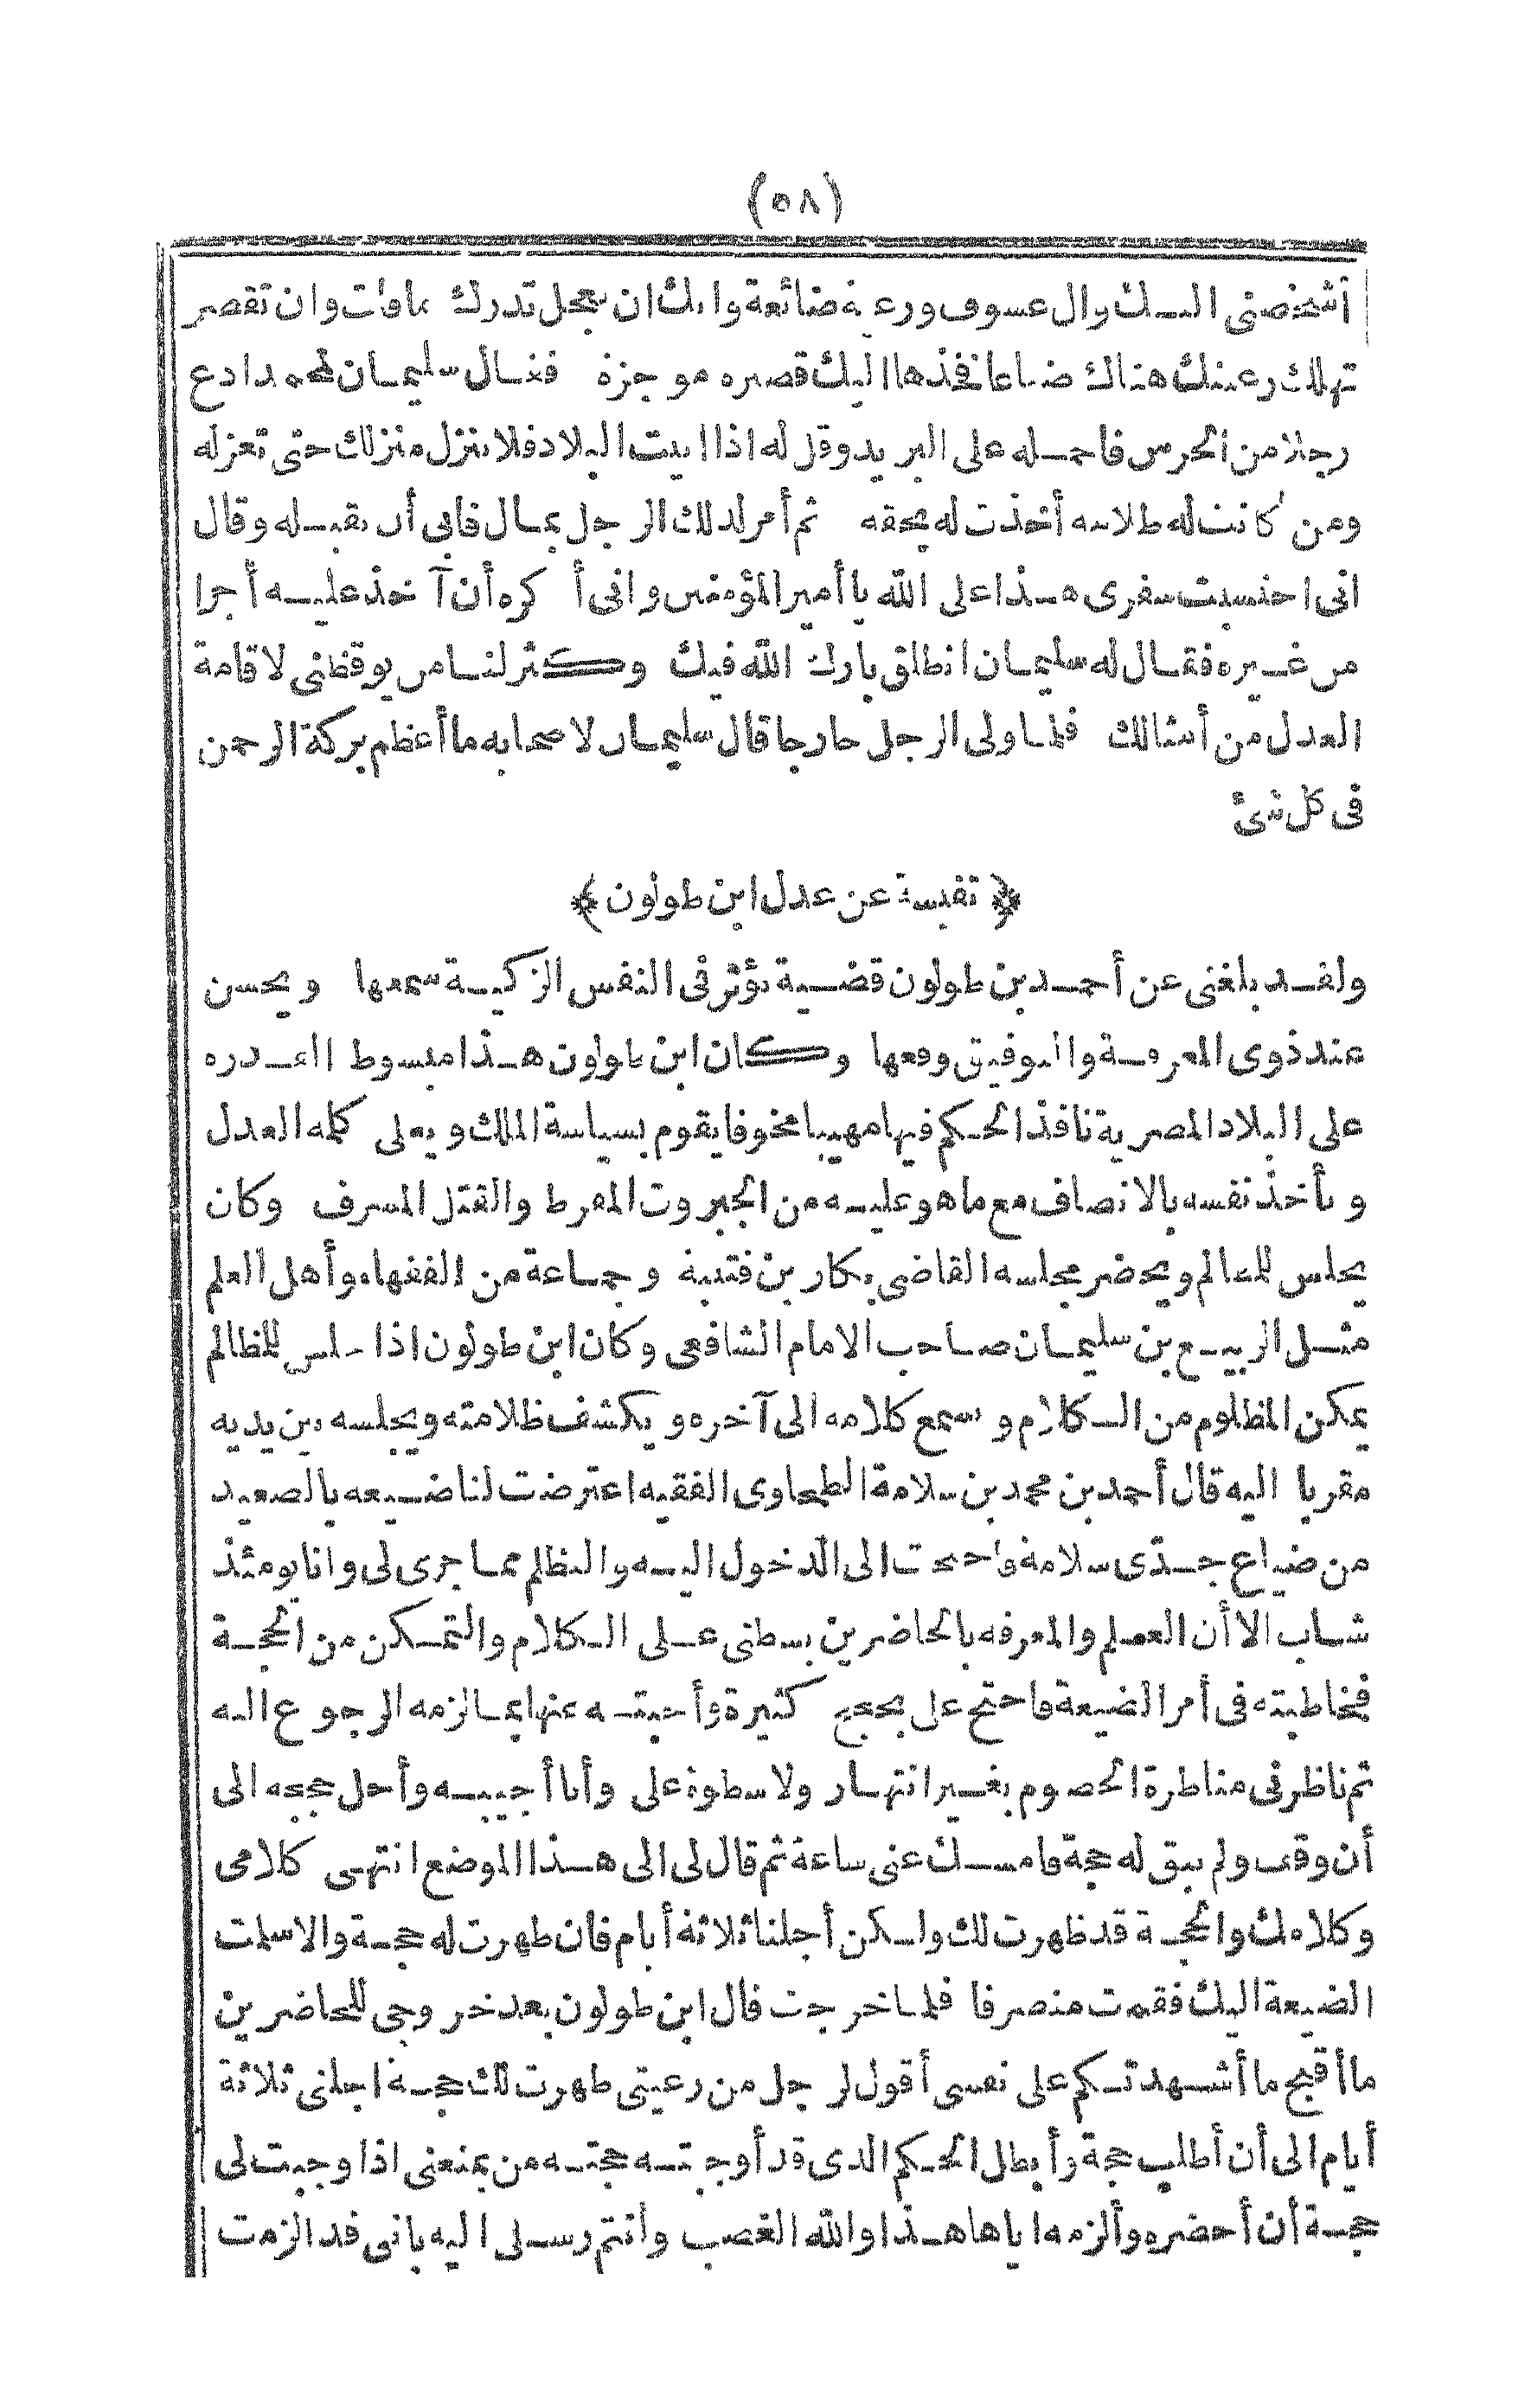 (٥٨)
أشخصني اليك وال عسوف ورعية ضائعة وانك ان تعجل تدرك مافات وان تقصر
تهلك رعيتك هناك ضياعا فخذها اليك قصيره موجزة فقال سليمان لمحمد ادع
رجلا من الحرس فاحمله على البريد وقل له اذا اتيت البلاد فلا ينزل منزلك حتى تعزله
ومن كانت له ظلامه أخذت له بحقه ثم أمر لذلك الرجل بمال فابى أن يقبله وقال
انى احتسبت سفرى هذا على الله يا أمير المؤمنين وانى أكره أن آخذ عليه أجرا
من غيره فقال له سليمان انطلق بارك الله فيك وكثر لنا من يوقظنى لاقامة
العدل من أمثالك فلما ولى الرجل خارجا قال سليمان لاصحابه ما أعظم بركة الرحمن
فى كل شئ
﴿ نفيسة عن عدل ابن طولون ﴾
ولقد بلغنى عن أحمد بن طولون قضية يؤثر فى النفس الزكية سمعها ويحسن
عند ذوى المعرفة والتوفيق وقعها وكان ابن طولون هذا مبسوط القدره
على البلاد المصرية نافذ الحكم فيها مهيبا مخوفا يقوم بسياسة الملك ويعلى كلمه العدل
ويأخذ نفسه بالانصاف مع ما هو عليه من الجبروت المفرط والقتل المسرف وكان
يجلس للمظالم ويحضر مجلسه القاضى بكار بن قتيبة وجماعة من الفقهاء وأهل العلم
مثل الربيع بن سليمان صاحب الامام الشافعى وكان ابن طولون اذا جلس للمظالم
يمكن المظلوم من الكلام ويسمع كلامه الى آخره ويكشف ظلامته ويجلسه بين يديه
مقربا اليه قال أحمد بن محمد بن سلامة الطحاوى الفقيه اعترضت لنا ضيعه بالصعيد
من ضياع جدّى سلامة واحتجت الى الدخول اليه والتظلم مما جرى لى وانا يومئذ
شاب الا أن العلم والمعرفه بالحاضرين بسطنى على الكلام والتمكن من الحجة
فخاطبته فى أمر الضيعة فاحتج على بحجج كثيرة وأجبته عنها بما لزمه الرجوع اليه
ثم ناظرنى مناظرة الخصوم بغير انتهار ولا سطوة على وأنا أجيبه وأحل حججه الى
أن وقف ولم يبق له حجة فامسك عنى ساعة ثم قال لى الى هذا الموضع انتهى كلامى
وكلامك والحجة قد ظهرت لك ولكن أجلنا ثلاثة أيام فان ظهرت له حجة والا سلمت
الضيعة اليك فقمت منصرفا فلما خرجت قال ابن طولون بعد خروجى للحاضرين
ما أقبح ما أشهدتكم على نفسى أقول لرجل من رعيتى ظهرت لك حجة اجلنى ثلاثة
أيام الى أن أطلب حجة وأبطل الحكم الذى قد أوجبته حجته من يمنعنى اذا وجبت لى
حجة أن أحضره وألزمه اياها هذا والله الغصب وأنتم رسلى اليه بانى قد الزمت